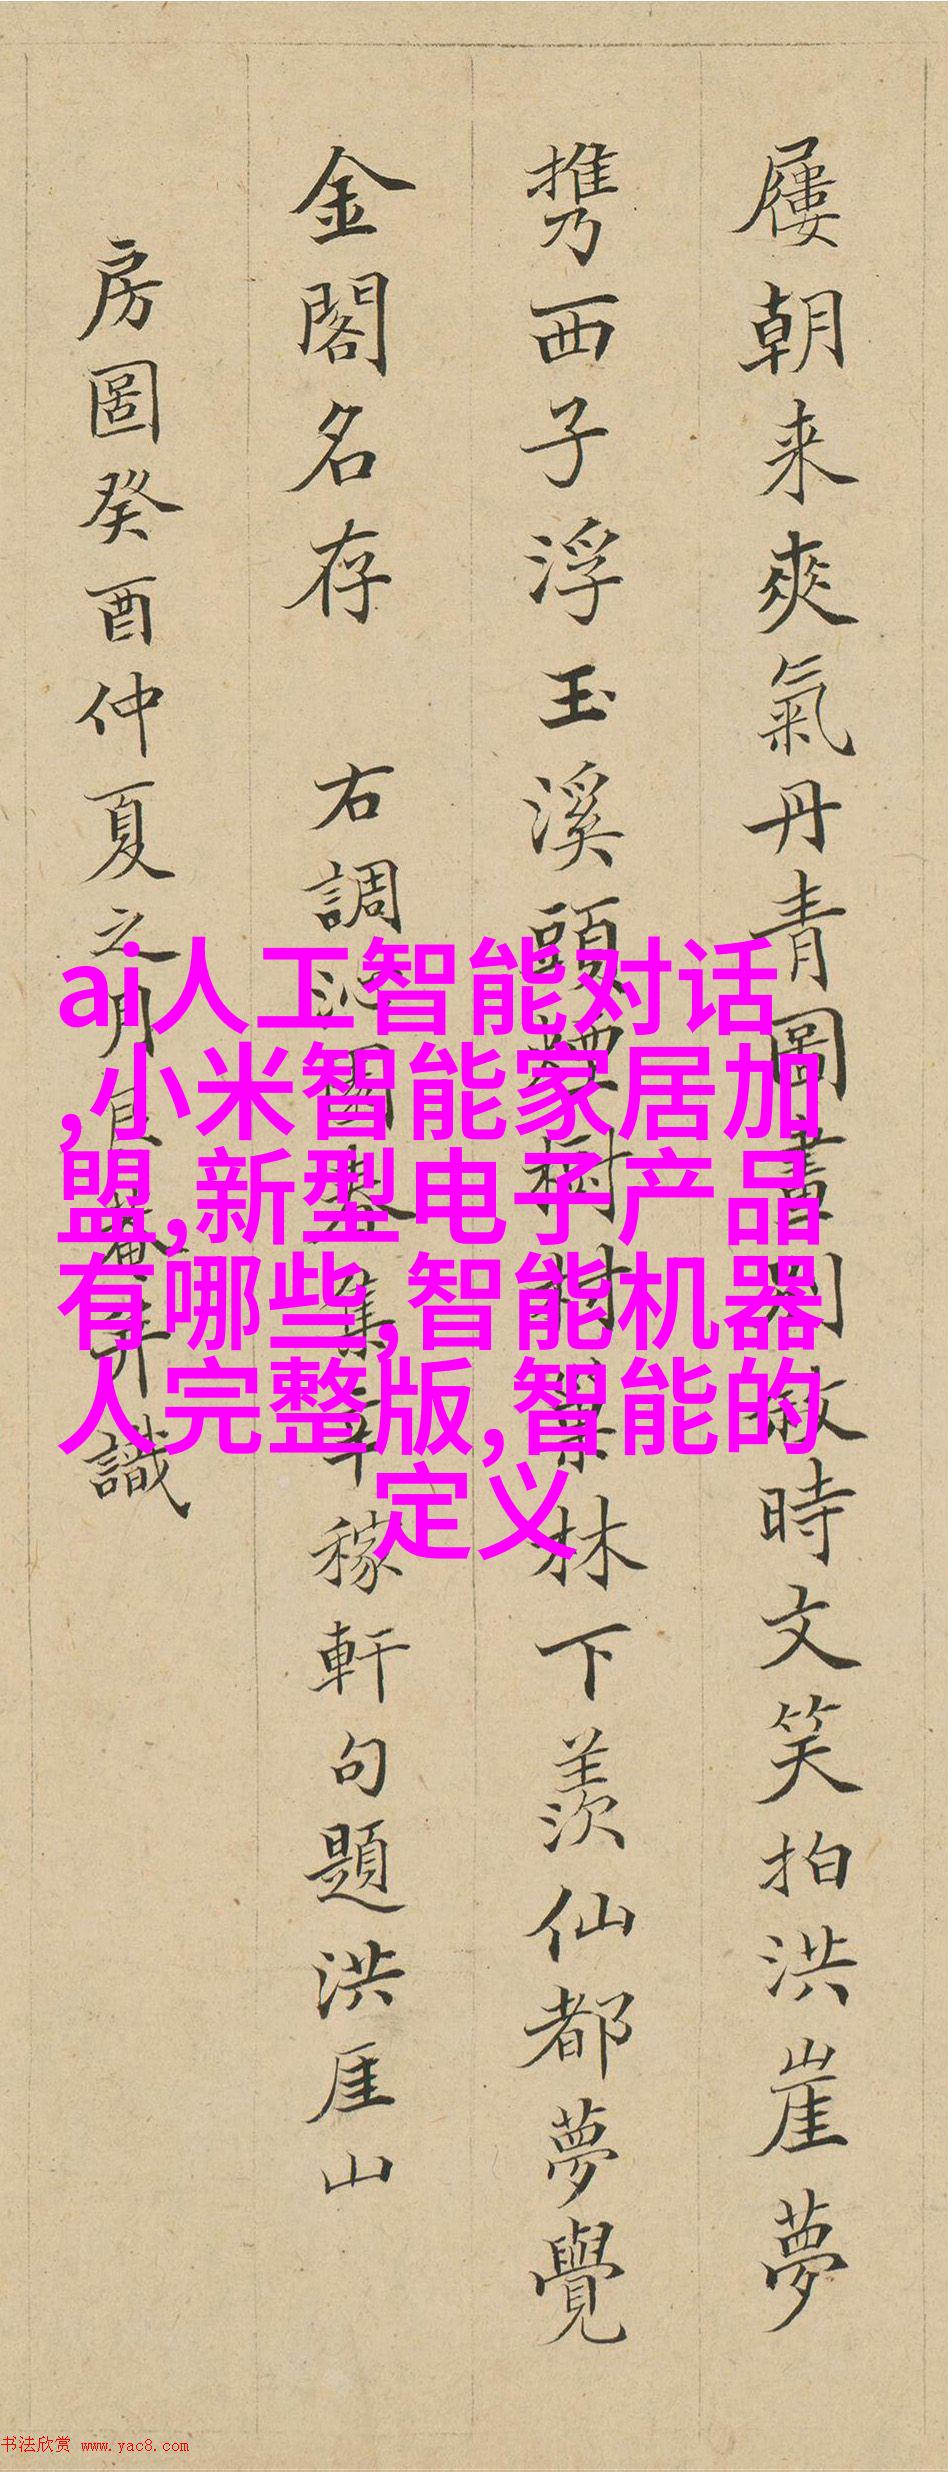 屨朝来爽氣丹青圖畫列敝時文笑拍洪崖夢
携西子浮玉溪頭煙樹村築林下羨仙都夢覺
金閣名存 右調沁園春集辛稼軒句題洪厓山
房圖癸酉仲夏之月艮菴并識
ai人工智能对话
,小米智能家居加
盟,新型电子产品
有哪些,智能机器
人完整版,智能的
定义
书法欣赏 www.yac8.com